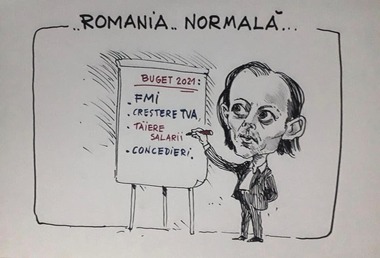 ..ROMANIA.. NORMALĂ...
BUGET 2021:
• FMI
• CRESTERE TVA,
• TĂIERE
SALARII
• CONCEDIERI.